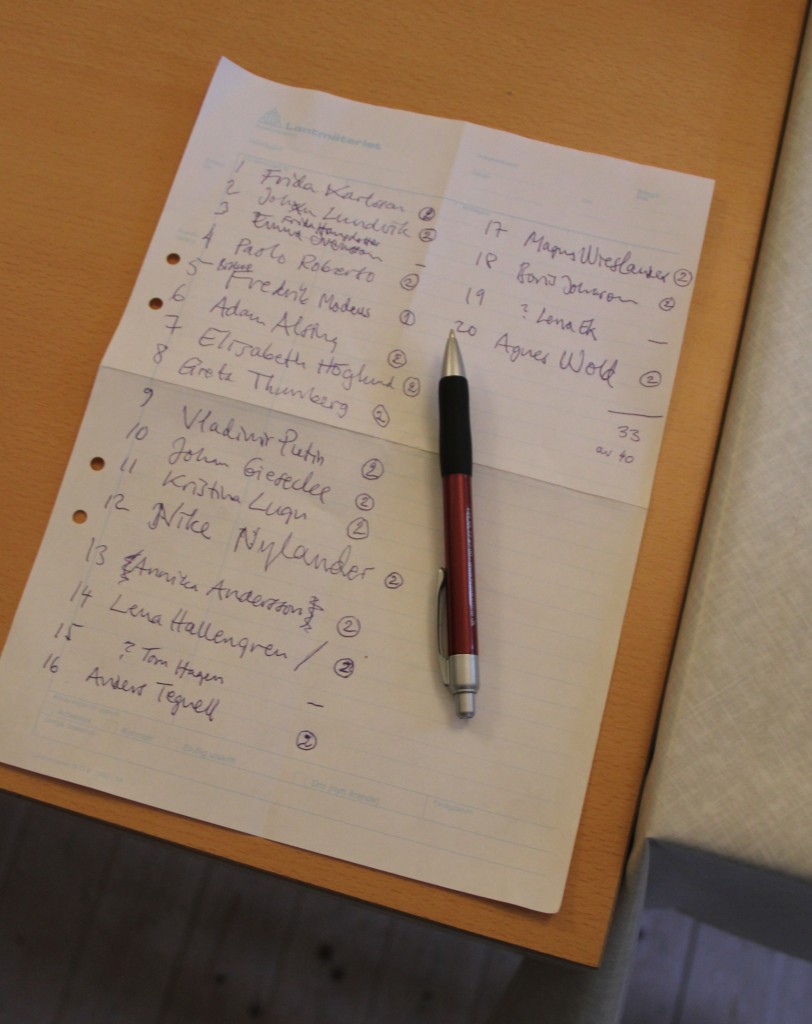 Lantmäteriet
1 Frida Karlsson 2
2 Johan Lundvik 2
3 Frida Hansdotter
Emma Svensson –
4 Paolo Roberto 2
5 Fredrik Modeus 1
6 Adam Alsing 2
7 Elisabeth Höglund 2
8 Greta Thunberg 2
9 Vladimir Putin 2
10 Johan Giesecke 2
11 Kristina Lugn 2
12 Nike Nylander 2
13 Annika Andersson 2
14 Lena Hallengren / 2
15 ? Tom Hagen –
16 Anders Tegnell 2
17 Magnus Wieslander 2
18 Boris Johnson 2
19 ? Lena Ek –
20 Agnes Wold 2
33
av 40